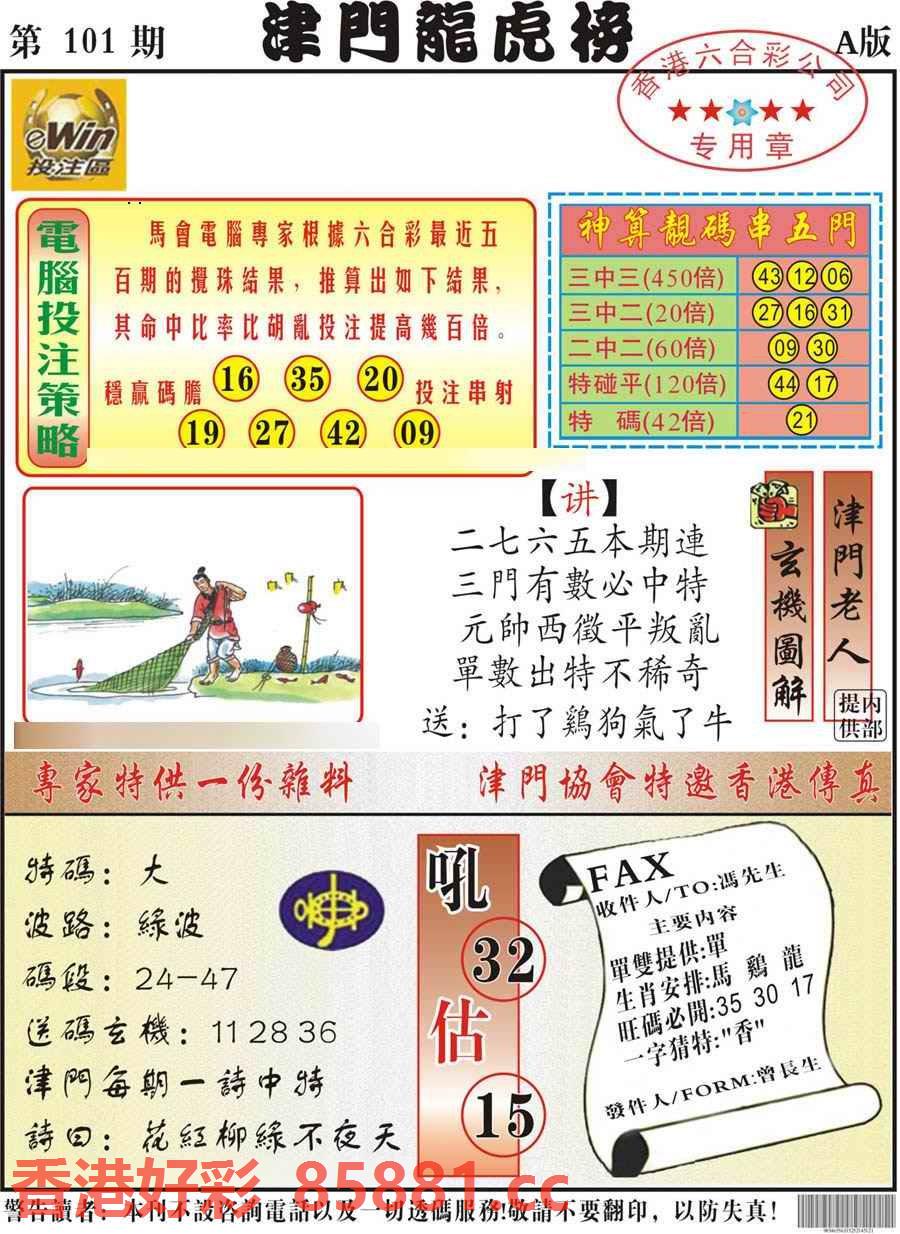 第 101 期
津門龍虎榜
A版
香港六合彩公司
专用章
eWin
投注區
電腦投注策略
馬會電腦專家根據六合彩最近五
百期的攪珠結果，推算出如下結果，
其命中比率比胡亂投注提高幾百倍。
穩贏碼膽 16 35 20 投注串射
19 27 42 09
神算靚碼串五門
三中三(450倍) 43 12 06
三中二(20倍) 27 16 31
二中二(60倍) 09 30
特碰平(120倍) 44 17
特 碼(42倍) 21
【讲】
二七六五本期連
三門有數必中特
元帥西徵平叛亂
單數出特不稀奇
送：打了鷄狗氣了牛
玄機圖解
津門老人
内部提供
專家特供一份雜料
津門協會特邀香港傳真
特碼：大
波路：綠波
碼段：24－47
送碼玄機：11 28 36
津門每期一詩中特
詩曰：花紅柳綠不夜天
吼
32
估
15
FAX
收件人/TO:馮先生
主要内容
單雙提供:單
生肖安排:馬 鷄 龍
旺碼必開:35 30 17
一字猜特:"香"
發件人/FORM:曾長生
香港好彩 85881.cc
警告讀者：本刊不設咨詢電話以及一切透碼服務!敬請不要翻印，以防失真!